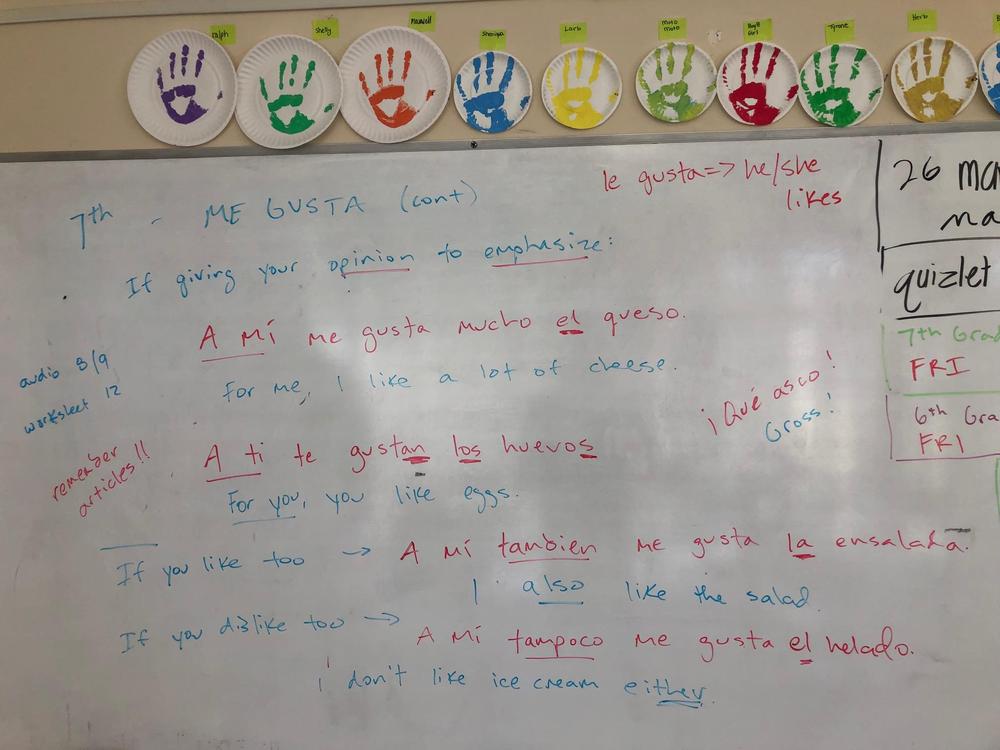 ralph
shelly
Maxwell
Shaniya
Lars
moto moto
Bagél Girl
Tyrone
Herb
7th - ME GUSTA (cont)
le gusta => he/she
likes
If giving your opinion to emphasize:
A MÍ me gusta mucho el queso.
For me, I like a lot of cheese.
audio 3/9
worksheet 12
A ti te gustan los huevos
For you, you like eggs.
remember
articles!!
¡Qué asco!
Gross!
If you like too → A MÍ tambien me gusta la ensalada.
I also like the salad.
If you dislike too → A MÍ tampoco me gusta el helado.
I don't like ice cream either.
26
quizlet
7th Grad
FRI
6th Gra
FRI